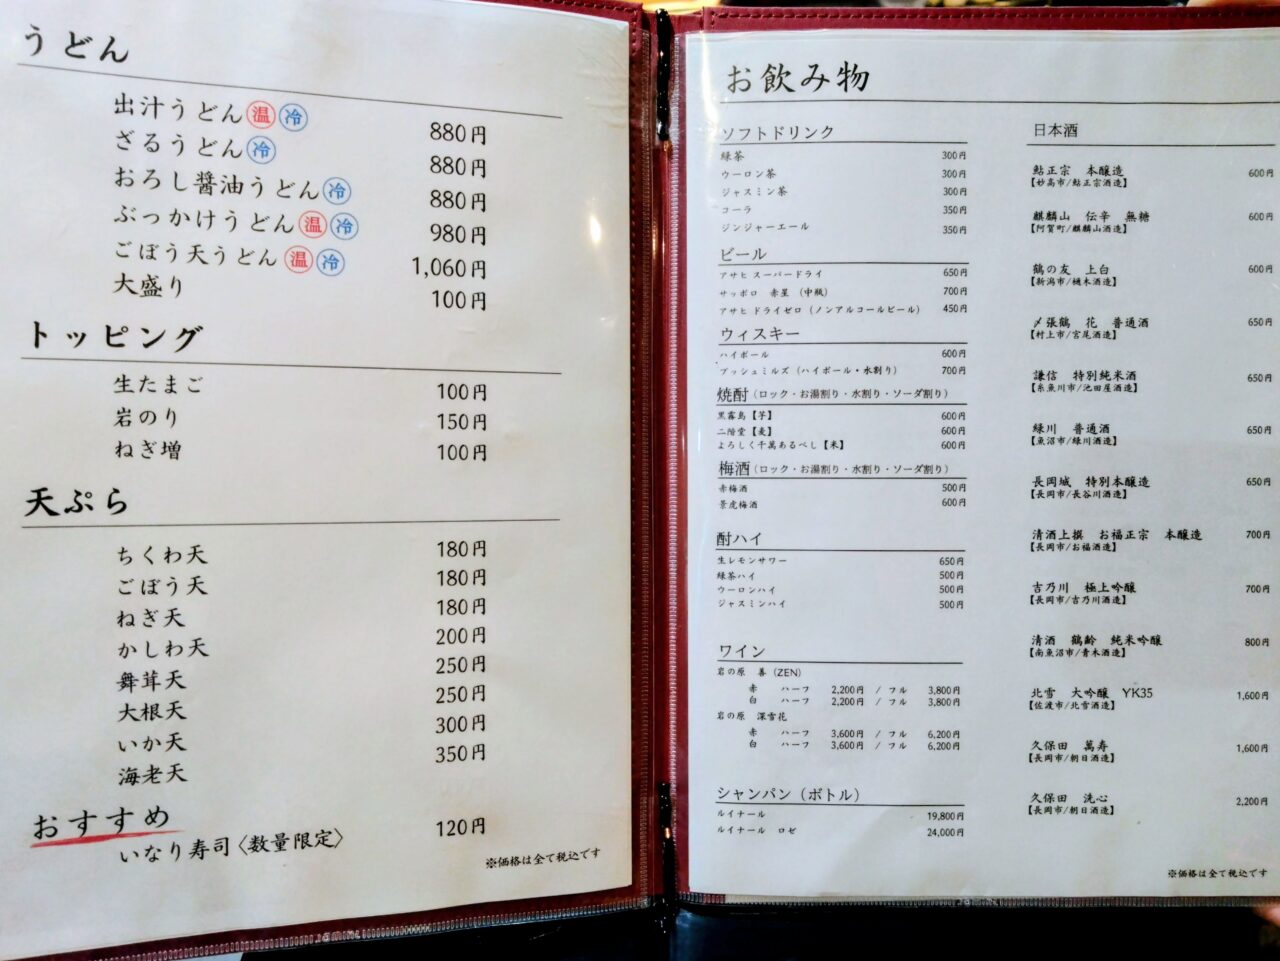 うどん
出汁うどん 温 冷 880円
ざるうどん 冷 880円
おろし醤油うどん 冷 880円
ぶっかけうどん 温 冷 980円
ごぼう天うどん 温 冷 1,060円
大盛り 100円
トッピング
生たまご 100円
岩のり 150円
ねぎ増 100円
天ぷら
ちくわ天 180円
ごぼう天 180円
ねぎ天 180円
かしわ天 200円
舞茸天 250円
大根天 250円
いか天 300円
海老天 350円
おすすめ
いなり寿司〈数量限定〉 120円
※価格は全て税込です
お飲み物
ソフトドリンク
緑茶 300円
ウーロン茶 300円
ジャスミン茶 300円
コーラ 350円
ジンジャーエール 350円
ビール
アサヒ スーパードライ 650円
サッポロ 赤星 (中瓶) 700円
アサヒ ドライゼロ (ノンアルコールビール) 450円
ウィスキー
ハイボール 600円
ブッシュミルズ (ハイボール・水割り) 700円
焼酎 (ロック・お湯割り・水割り・ソーダ割り)
黒霧島【芋】 600円
二階堂【麦】 600円
よろしく千萬あるべし【米】 600円
梅酒 (ロック・お湯割り・水割り・ソーダ割り)
赤梅酒 500円
景虎梅酒 600円
酎ハイ
生レモンサワー 650円
緑茶ハイ 500円
ウーロンハイ 500円
ジャスミンハイ 500円
ワイン
岩の原 善 (ZEN)
赤 ハーフ 2,200円 / フル 3,800円
白 ハーフ 2,200円 / フル 3,800円
岩の原 深雪花
赤 ハーフ 3,600円 / フル 6,200円
白 ハーフ 3,600円 / フル 6,200円
シャンパン (ボトル)
ルイナール 19,800円
ルイナール ロゼ 24,000円
日本酒
鮎正宗 本醸造 600円
【妙高市/鮎正宗酒造】
麒麟山 伝辛 無糖 600円
【阿賀町/麒麟山酒造】
鶴の友 上白 600円
【新潟市/樋木酒造】
〆張鶴 花 普通酒 650円
【村上市/宮尾酒造】
謙信 特別純米酒 650円
【糸魚川市/池田屋酒造】
緑川 普通酒 650円
【魚沼市/緑川酒造】
長岡城 特別本醸造 650円
【長岡市/長谷川酒造】
清酒上撰 お福正宗 本醸造 700円
【長岡市/お福酒造】
吉乃川 極上吟醸 700円
【長岡市/吉乃川酒造】
清酒 鶴齢 純米吟醸 800円
【南魚沼市/青木酒造】
北雪 大吟醸 YK35 1,600円
【佐渡市/北雪酒造】
久保田 萬寿 1,600円
【長岡市/朝日酒造】
久保田 洗心 2,200円
【長岡市/朝日酒造】
※価格は全て税込です